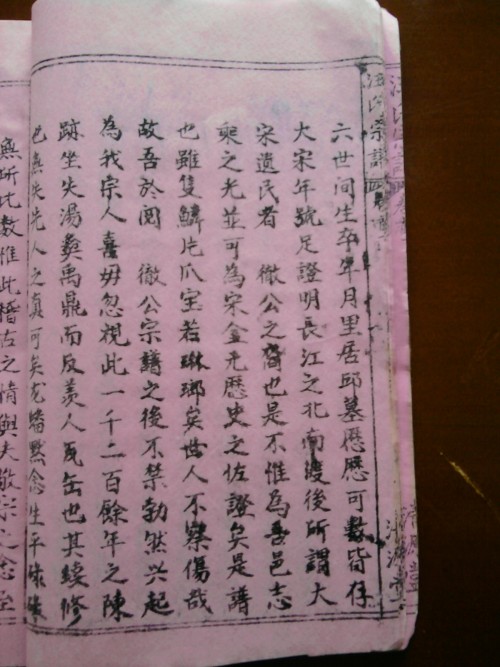 汪氏宗譜
六世间生卒年月里居邱墓歷歷可數皆存
大宋年號足證明長江之北南渡後所謂大
宋遺民者 徹公之裔也是不惟為吾邑志
乘之光並可為宋金元歷史之佐證矣是譜
也雖隻鱗片爪宝若琳瑯矣世人不察傷哉
故吾於閱 徹公宗譜之後不禁勃然兴起
為我宗人喜毋忽視此一千二百餘年之陳
跡坐失湯彝禹鼎而反羡人瓦缶也其續修
也無失先人之真可矣克墀默念生平碌碌
無所比數惟此稽古之情與夫敬宗之念至